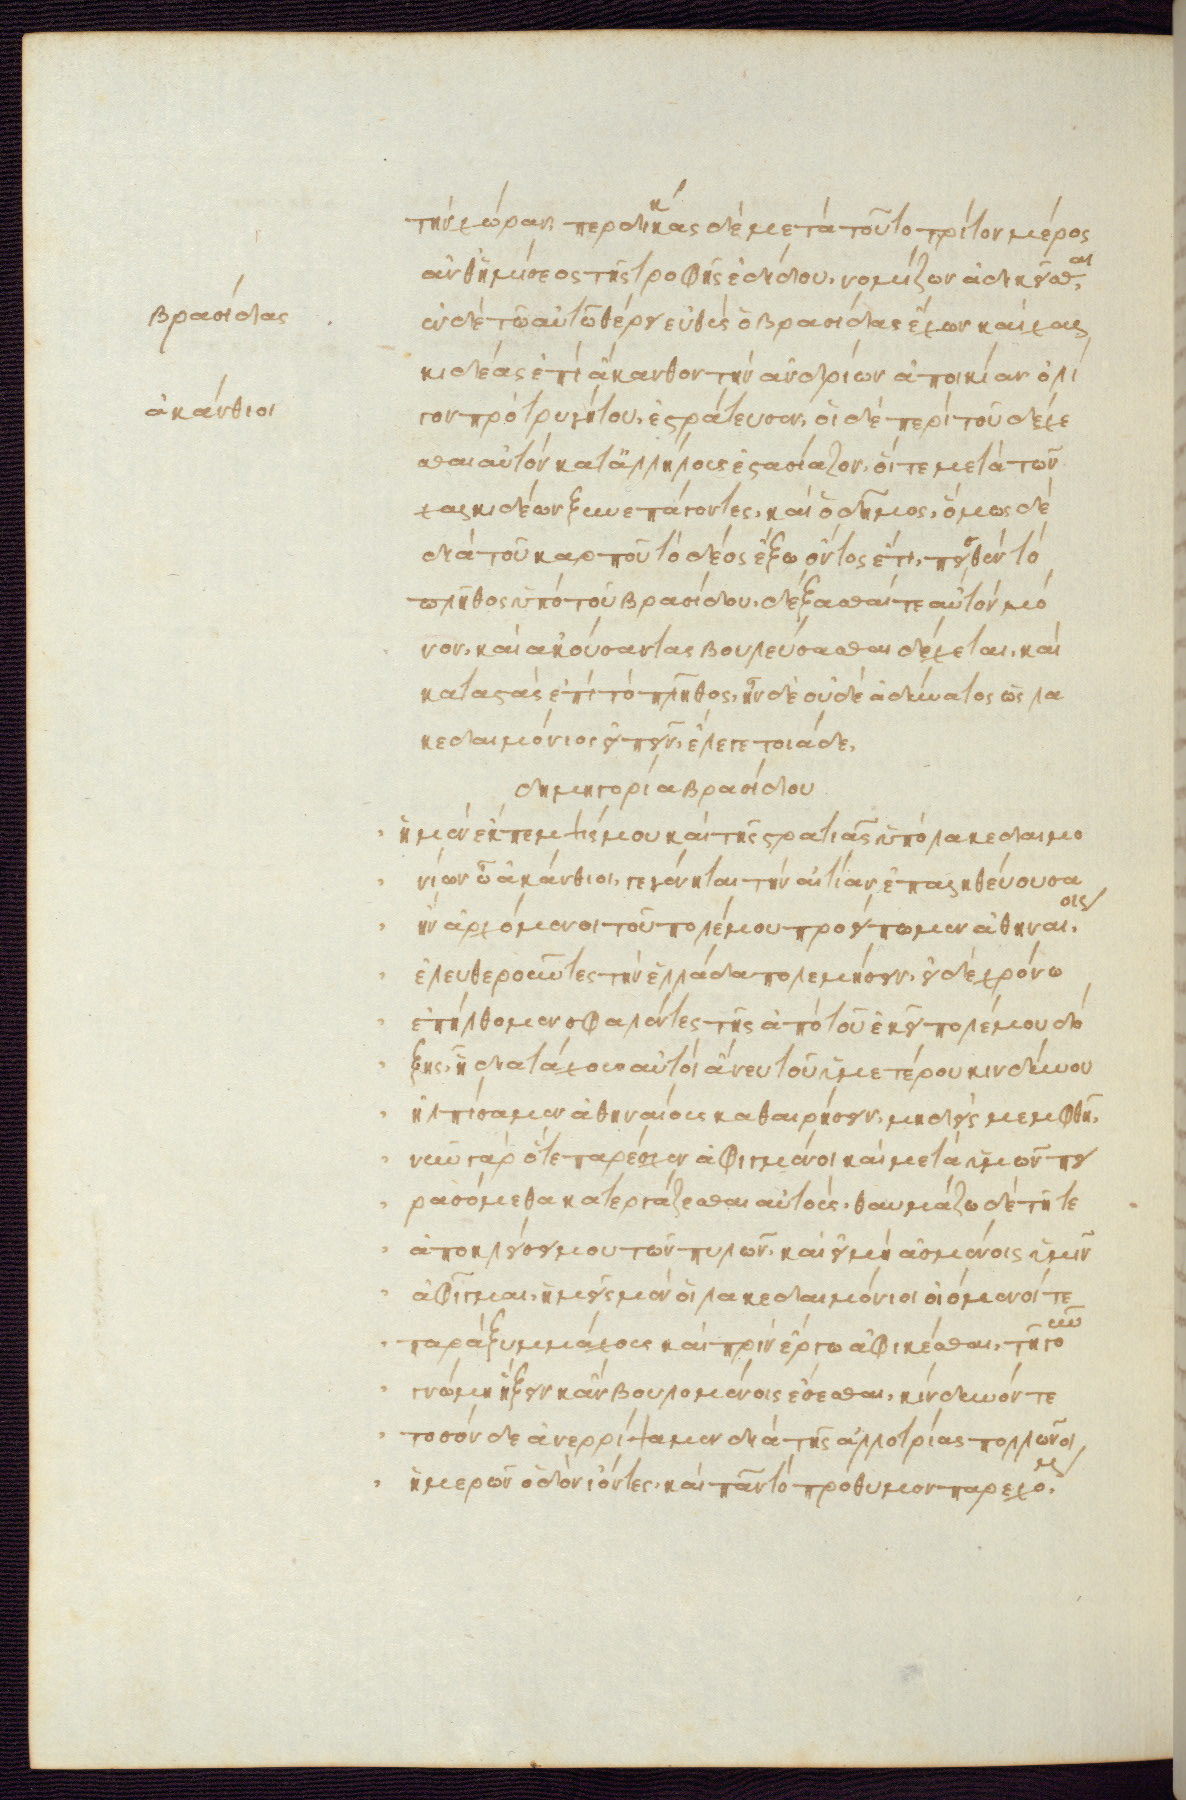 τὴν χώραν. περδίκκας δὲ μετὰ τοῦτο τρίτον μέρος
ἀνθ' ἡμίσεος τῆς τροφῆς ἐδίδου, νομίζων ἀδικεῖσθαι.
βρασίδας
ἐν δὲ τῶ αὐτῶ θέρει εὐθὺς ὁ βρασίδας ἔχων καὶ χαλ
κιδέας ἐπὶ ἄκανθον τὴν ἀνδρίων ἀποικίαν ὀλί
ἀκάνθιοι
γον πρὸ τρυγήτου, ἐστράτευσεν. οἱ δὲ περὶ τοῦ δέχε
σθαι αὐτὸν κατ' ἀλλήλους ἐστασίαζον, οἵ τε μετὰ τῶν
χαλκιδέων ξυνεπάγοντες, καὶ ὁ δῆμος, ὅμως δὲ
διὰ τοῦ καρποῦ τὸ δέος ἔξω ὄντος ἔτι, πεισθὲν τὸ
πλῆθος ὑπὸ τοῦ βρασίδου, δέξασθαί τε αὐτὸν μό
νον, καὶ ἀκούσαντας βουλεύσασθαι δέχεται, καὶ
καταστὰς ἐπὶ τὸ πλῆθος, ἦν δὲ οὐδὲ ἀδύνατος ὡς λα
κεδαιμόνιος εἰπεῖν, ἔλεγε τοιάδε.
δημηγορία βρασίδου
ἡ μὲν ἔκπεμψίς μου καὶ τῆς στρατιᾶς ὑπὸ λακεδαιμο
νίων ὦ ἀκάνθιοι, γεγένηται τὴν αἰτίαν ἐπαληθεύουσα
ἣν ἀρχόμενοι τοῦ πολέμου προείπομεν ἀθηναίοις,
ἐλευθεροῦντες τὴν ἑλλάδα πολεμήσειν. εἰ δὲ χρόνω
ἐπήλθομεν σφαλέντες τῆς ἀπὸ τοῦ ἐκεῖ πολέμου δό
ξης, ἧ διὰ τάχους αὐτοὶ ἄνευ τοῦ ὑμετέρου κινδύνου
ἠλπίσαμεν ἀθηναίους καθαιρήσειν, μηδεὶς μεμφθῆ.
νῦν γὰρ ὅτε παρέσχεν ἀφιγμένοι καὶ μετὰ ὑμῶν πει
ρασόμεθα κατεργάζεσθαι αὐτούς. θαυμάζω δὲ τῆ τε
ἀποκλείσει μου τῶν πυλῶν, καὶ εἰ μὴ ἀσμένοις ὑμῖν
ἀφῖγμαι. ἡμεῖς μὲν οἱ λακεδαιμόνιοι οἰόμενοί τε
παρὰ ξυμμάχους καὶ πρὶν ἔργω ἀφικέσθαι, τῆ γοῦν
γνώμη ἥξειν καὶ ἂν βουλομένοις ἔσεσθαι, κίνδυνόν τε
τοσόνδε ἀνερρίψαμεν διὰ τῆς ἀλλοτρίας πολλῶν
ἡμερῶν ὁδὸν ἰόντες, καὶ πᾶν τὸ πρόθυμον παρεχόμ.